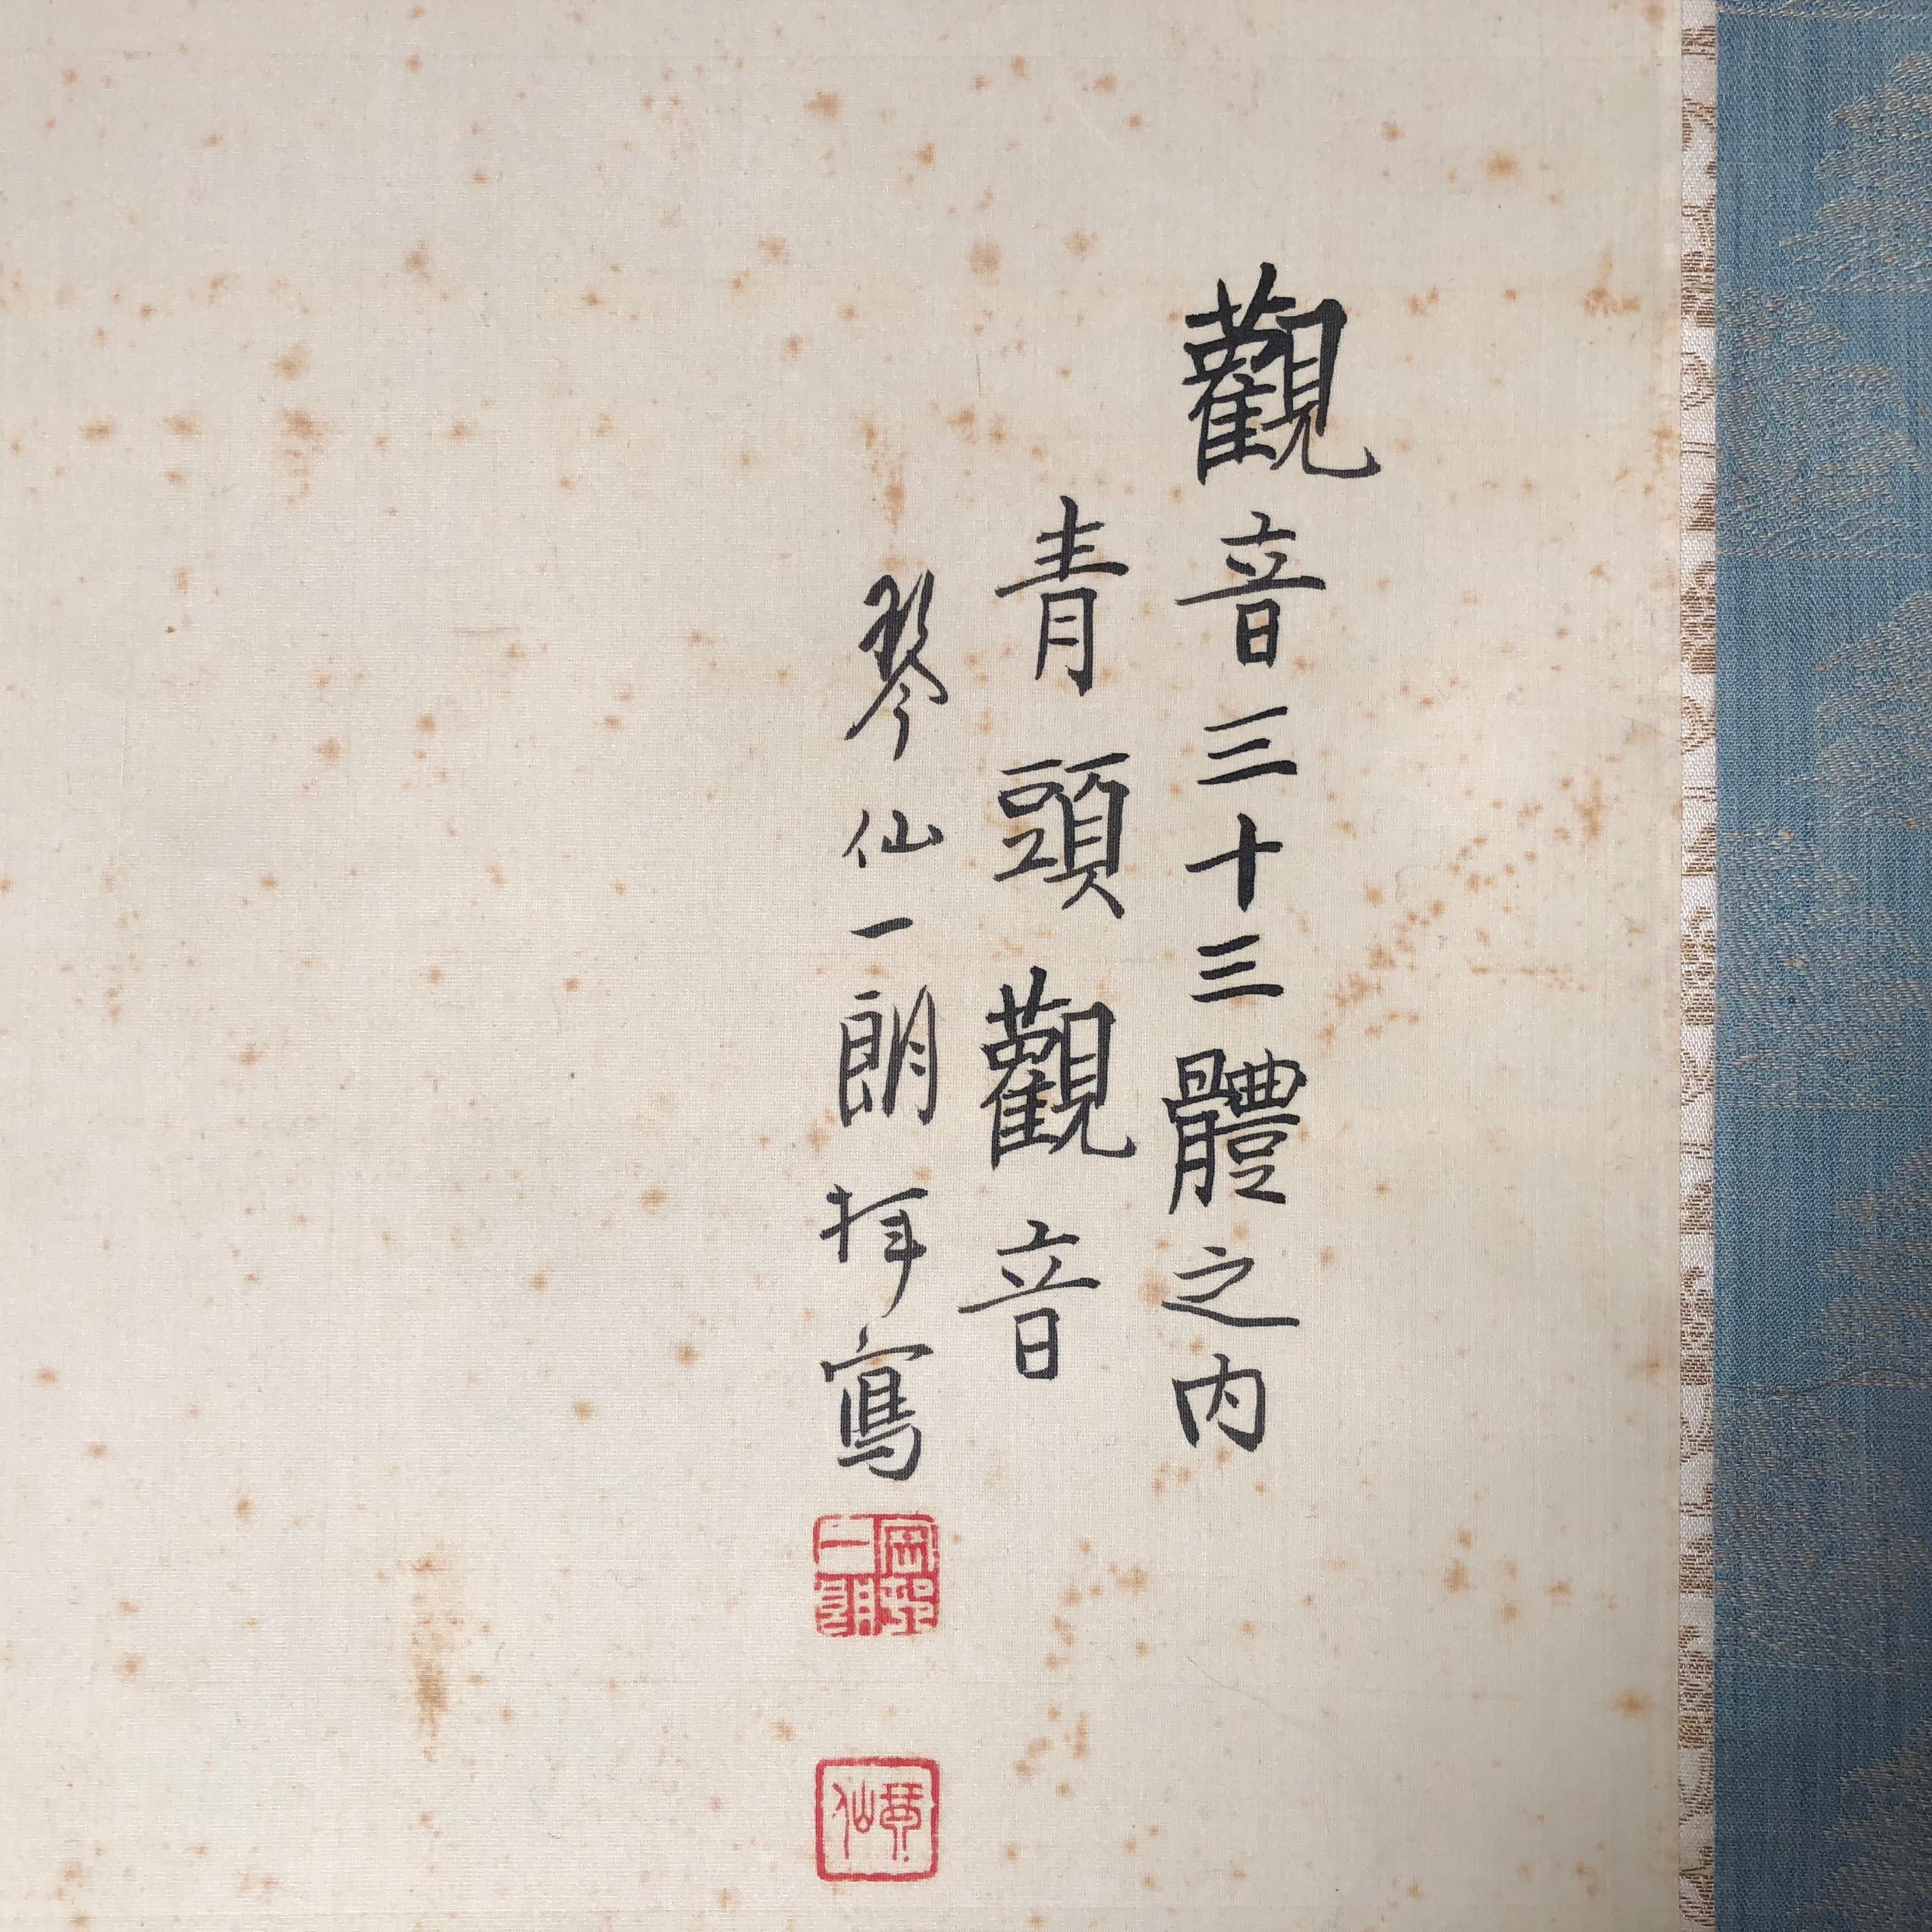 觀音三十三體之内
青頭觀音
琴仙一朗拜寫
琴仙